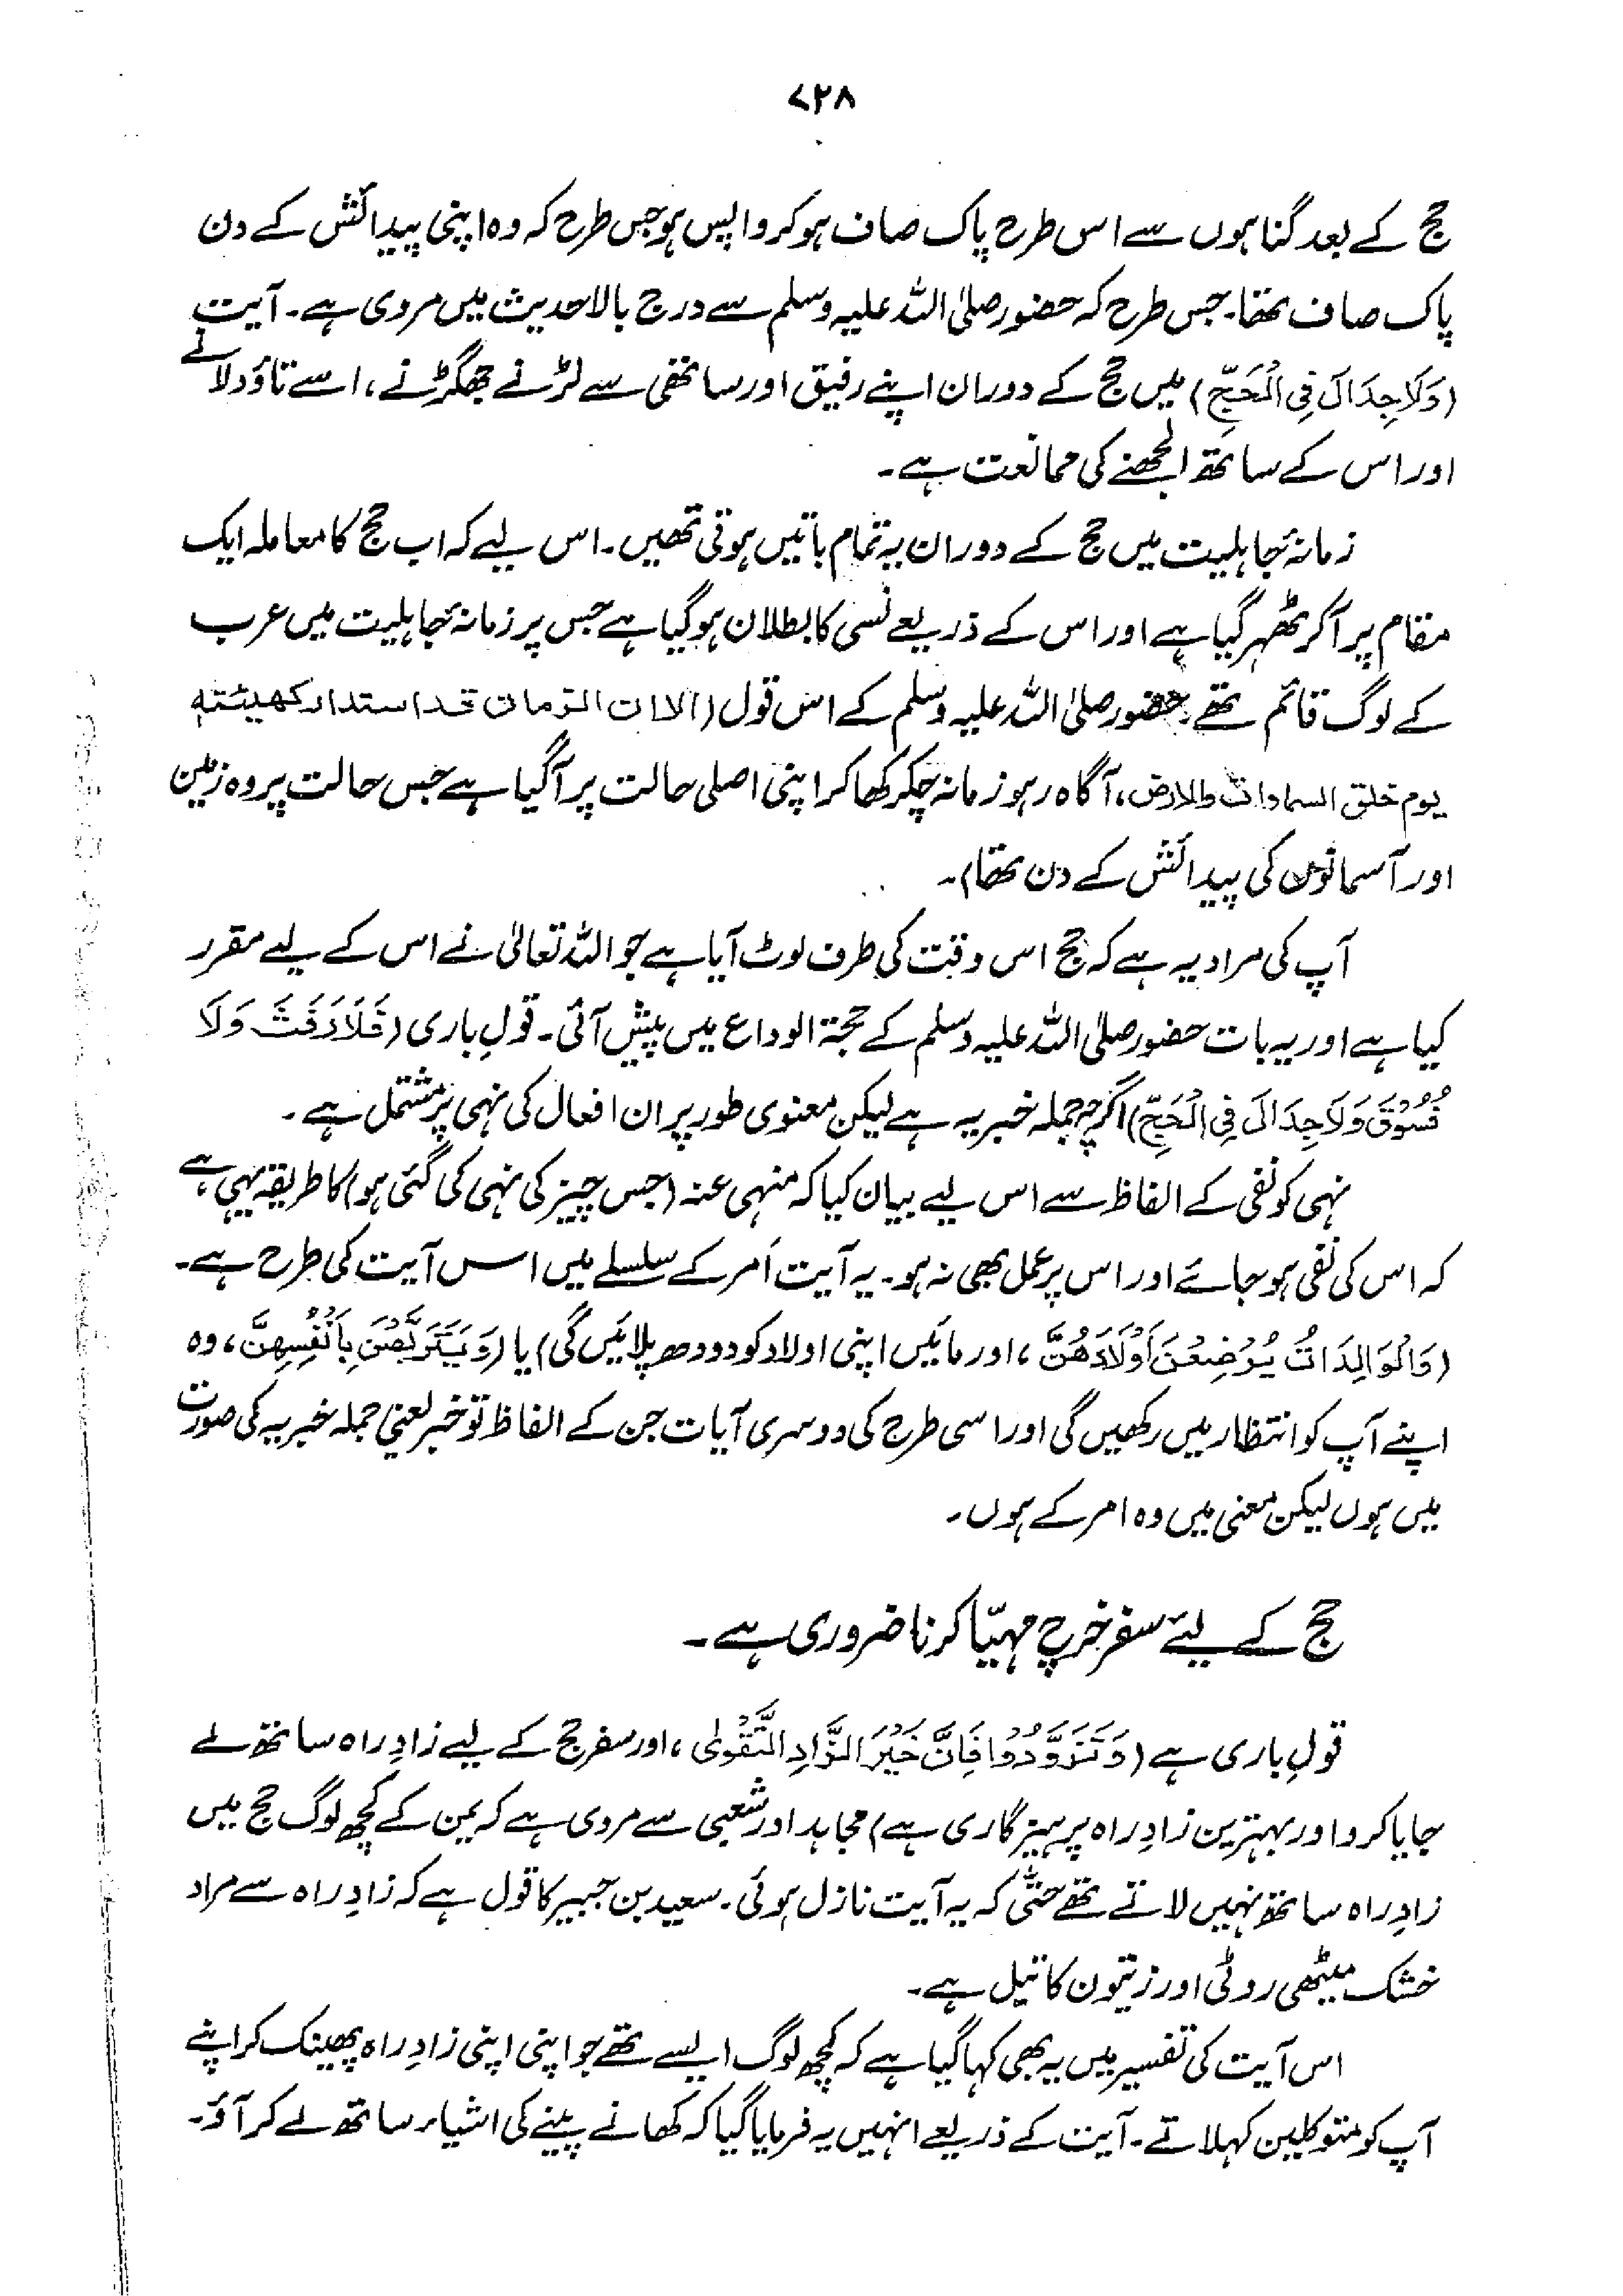 ۷۲۸
حج کے بعد گناہوں سے اس طرح پاک صاف ہو کر واپس ہو جس طرح کہ وہ اپنی پیدائش کے دن
پاک صاف تھا۔ جس طرح کہ حضور صلی اللہ علیہ وسلم سے درج بالا حدیث میں مروی ہے۔ آیت
(وَلَا جِدَالَ فِی الْحَجِّ) میں حج کے دوران اپنے رفیق اور ساتھی سے لڑنے جھگڑنے، اسے تاؤ دلانے
اور اس کے ساتھ الجھنے کی ممانعت ہے۔
زمانۂ جاہلیت میں حج کے دوران یہ تمام باتیں ہوتی تھیں۔ اس لیے کہ اب حج کا معاملہ ایک
مقام پر آ کر ٹھہر گیا ہے اور اس کے ذریعے نسی کا بطلان ہو گیا ہے جس پر زمانۂ جاہلیت میں عرب
کے لوگ قائم تھے۔ حضور صلی اللہ علیہ وسلم کے اس قول (الا ان الزمان قد استدار کھیئتہ
یوم خلق السماوات والارض، آگاہ رہو زمانہ چکر کھا کر اپنی اصلی حالت پر آ گیا ہے جس حالت پر وہ زمین
اور آسمانوں کی پیدائش کے دن تھا)۔
آپ کی مراد یہ ہے کہ حج اس وقت کی طرف لوٹ آیا ہے جو اللہ تعالیٰ نے اس کے لیے مقرر
کیا ہے اور یہ بات حضور صلی اللہ علیہ وسلم کے حجۃ الوداع میں پیش آئی۔ قولِ باری (فَلَا رَفَثَ وَلَا
فُسُوْقَ وَلَا جِدَالَ فِی الْحَجِّ) اگرچہ جملہ خبریہ ہے لیکن معنوی طور پر ان افعال کی نہی پر مشتمل ہے۔
نہی کو نفی کے الفاظ سے اس لیے بیان کیا کہ منہی عنہ (جس چیز کی نہی کی گئی ہو) کا طریقہ یہی ہے
کہ اس کی نفی ہو جائے اور اس پر عمل بھی نہ ہو۔ یہ آیت اَمر کے سلسلے میں اس آیت کی طرح ہے۔
(وَالْوَالِدَاتُ یُرْضِعْنَ اَوْلَادَھُنَّ، اور مائیں اپنی اولاد کو دودھ پلائیں گی) یا (وَیَتَرَبَّصْنَ بِاَنْفُسِھِنَّ، وہ
اپنے آپ کو انتظار میں رکھیں گی اور اسی طرح کی دوسری آیات جن کے الفاظ تو خبر یعنی جملہ خبریہ کی صورت
میں ہوں لیکن معنی میں وہ امر کے ہوں۔
حج کے لیئے سفر خرچ مہیّا کرنا ضروری ہے۔
قولِ باری ہے (وَتَزَوَّدُوْا فَاِنَّ خَیْرَ الزَّادِ التَّقْوٰی، اور سفر حج کے لیے زادِ راہ ساتھ لے
جایا کرو اور بہترین زادِ راہ پرہیزگاری ہے) مجاہد اور شعبی سے مروی ہے کہ یمن کے کچھ لوگ حج میں
زادِ راہ ساتھ نہیں لاتے تھے حتّٰی کہ یہ آیت نازل ہوئی۔ سعید بن جبیر کا قول ہے کہ زادِ راہ سے مراد
خشک میٹھی روٹی اور زیتون کا تیل ہے۔
اس آیت کی تفسیر میں یہ بھی کہا گیا ہے کہ کچھ لوگ ایسے تھے جو اپنی اپنی زادِ راہ پھینک کر اپنے
آپ کو متوکلین کہلاتے۔ آیت کے ذریعے انہیں یہ فرمایا گیا کہ کھانے پینے کی اشیاء ساتھ لے کر آؤ۔